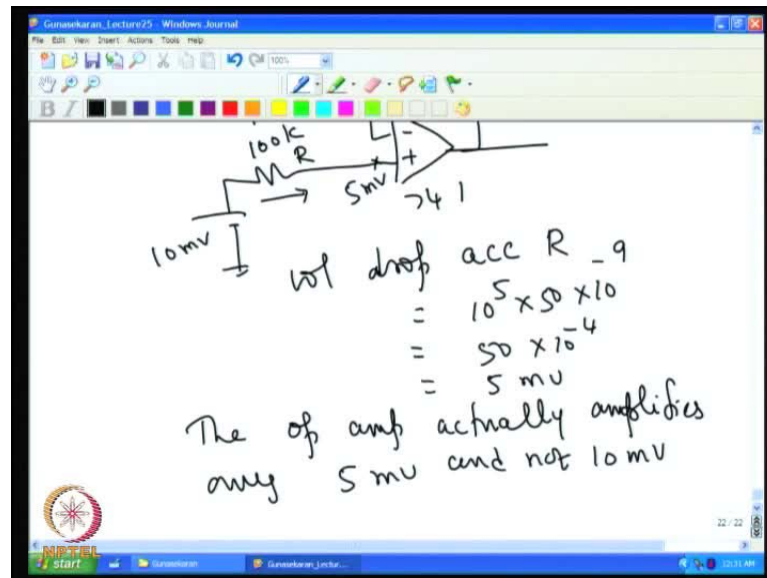 Gunasekaran_Lecture25 - Windows Journal
File Edit View Insert Actions Tools Help
100%
B I
100k
R
-
+
5mv
741
10mv
vol drop acc R
= 10^5 × 50 × 10^-9
= 50 × 10^-4
= 5 mv
The op amp actually amplifies
only 5 mv and not 10 mv
22 / 22
NPTEL
start Gunasekaran Gunasekaran_Lectur... 12:31 AM